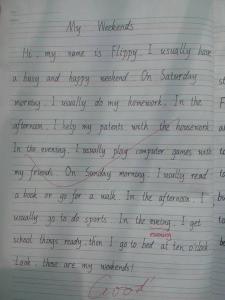 My Weekends
Hi, my name is Flippy. I usually have
a busy and happy weekend. On Saturday
morning, I usually do my homework. In the
afternoon, I help my patents with the housework.
In the evening, I usually play computer games with
my friends. On Sunday morning, I usually read
a book or go for a walk. In the afternoon, I
usually go to do sports. In the evering, I get
evening
school things ready, then I go to bed at ten o'clock
Look, these are my weekends!
Good